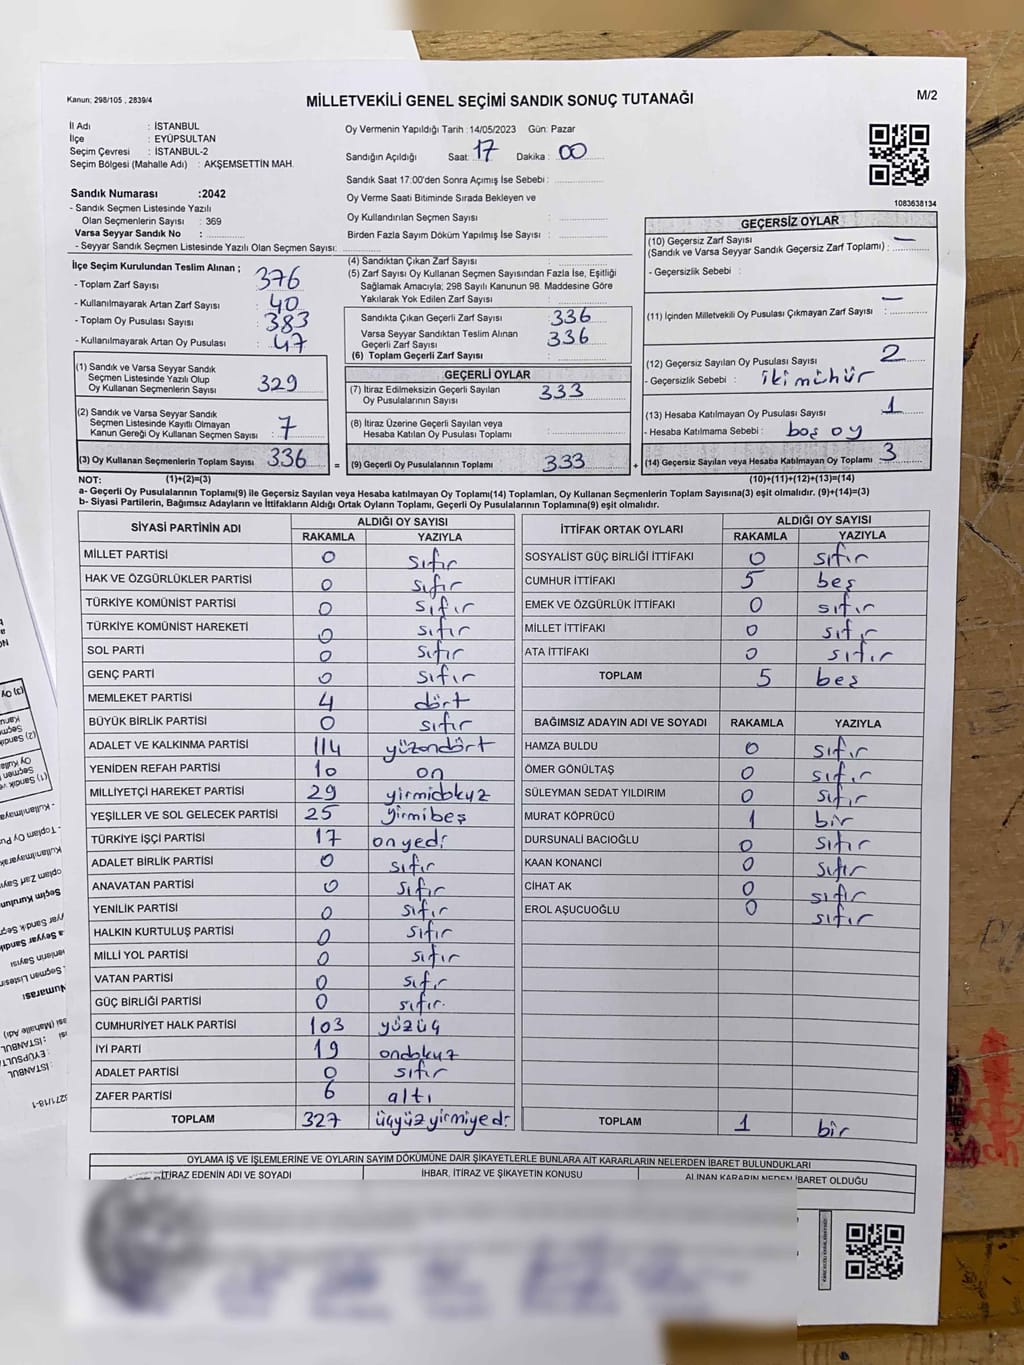 Kanun; 298/105 , 2839/4
MİLLETVEKİLİ GENEL SEÇİMİ SANDIK SONUÇ TUTANAĞI
M/2
İl Adı : İSTANBUL
İlçe : EYÜPSULTAN
Seçim Çevresi : İSTANBUL-2
Seçim Bölgesi (Mahalle Adı) : AKŞEMSETTİN MAH.
Sandık Numarası :2042
- Sandık Seçmen Listesinde Yazılı
Olan Seçmenlerin Sayısı : 369
Varsa Seyyar Sandık No :
- Seyyar Sandık Seçmen Listesinde Yazılı Olan Seçmen Sayısı:
Oy Vermenin Yapıldığı Tarih :14/05/2023 Gün: Pazar
Sandığın Açıldığı Saat: 17 Dakika : 00
Sandık Saat 17:00'den Sonra Açımış İse Sebebi :
Oy Verme Saati Bitiminde Sırada Bekleyen ve
Oy Kullandırılan Seçmen Sayısı :
Birden Fazla Sayım Döküm Yapılmış İse Sayısı :
1083638134
İlçe Seçim Kurulundan Teslim Alınan ;
- Toplam Zarf Sayısı : 376
- Kullanılmayarak Artan Zarf Sayısı : 40
- Toplam Oy Pusulası Sayısı : 383
- Kullanılmayarak Artan Oy Pusulası : 47
(1) Sandık ve Varsa Seyyar Sandık
Seçmen Listesinde Yazılı Olup
Oy Kullanan Seçmenlerin Sayısı : 329
(2) Sandık ve Varsa Seyyar Sandık
Seçmen Listesinde Kayıtlı Olmayan
Kanun Gereği Oy Kullanan Seçmen Sayısı : 7
(3) Oy Kullanan Seçmenlerin Toplam Sayısı 336
(4) Sandıktan Çıkan Zarf Sayısı :
(5) Zarf Sayısı Oy Kullanan Seçmen Sayısından Fazla İse, Eşitliği
Sağlamak Amacıyla; 298 Sayılı Kanunun 98. Maddesine Göre
Yakılarak Yok Edilen Zarf Sayısı :
Sandıkta Çıkan Geçerli Zarf Sayısı : 336
Varsa Seyyar Sandıktan Teslim Alınan
Geçerli Zarf Sayısı : 336
(6) Toplam Geçerli Zarf Sayısı :
GEÇERLİ OYLAR
(7) İtiraz Edilmeksizin Geçerli Sayılan
Oy Pusulalarının Sayısı : 333
(8) İtiraz Üzerine Geçerli Sayılan veya
Hesaba Katılan Oy Pusulası Toplamı :
= (9) Geçerli Oy Pusulalarının Toplamı 333 +
GEÇERSİZ OYLAR
(10) Geçersiz Zarf Sayısı
(Sandık ve Varsa Seyyar Sandık Geçersiz Zarf Toplamı) : —
- Geçersizlik Sebebi :
(11) İçinden Milletvekili Oy Pusulası Çıkmayan Zarf Sayısı : —
(12) Geçersiz Sayılan Oy Pusulası Sayısı : 2
- Geçersizlik Sebebi : iki mühür
(13) Hesaba Katılmayan Oy Pusulası Sayısı : 1
- Hesaba Katılmama Sebebi : boş oy
(14) Geçersiz Sayılan veya Hesaba Katılmayan Oy Toplamı : 3
NOT: (1)+(2)=(3) (10)+(11)+(12)+(13)=(14)
a- Geçerli Oy Pusulalarının Toplamı(9) ile Geçersiz Sayılan veya Hesaba katılmayan Oy Toplamı(14) Toplamları, Oy Kullanan Seçmenlerin Toplam Sayısına(3) eşit olmalıdır. (9)+(14)=(3)
b- Siyasi Partilerin, Bağımsız Adayların ve İttifakların Aldığı Ortak Oyların Toplamı, Geçerli Oy Pusulalarının Toplamına(9) eşit olmalıdır.
SİYASİ PARTİNİN ADI ALDIĞI OY SAYISI
RAKAMLA YAZIYLA
MİLLET PARTİSİ 0 sıfır
HAK VE ÖZGÜRLÜKLER PARTİSİ 0 sıfır
TÜRKİYE KOMÜNİST PARTİSİ 0 sıfır
TÜRKİYE KOMÜNİST HAREKETİ 0 sıfır
SOL PARTİ 0 sıfır
GENÇ PARTİ 0 sıfır
MEMLEKET PARTİSİ 4 dört
BÜYÜK BİRLİK PARTİSİ 0 sıfır
ADALET VE KALKINMA PARTİSİ 114 yüzondört
YENİDEN REFAH PARTİSİ 10 on
MİLLİYETÇİ HAREKET PARTİSİ 29 yirmidokuz
YEŞİLLER VE SOL GELECEK PARTİSİ 25 yirmibeş
TÜRKİYE İŞÇİ PARTİSİ 17 onyedi
ADALET BİRLİK PARTİSİ 0 sıfır
ANAVATAN PARTİSİ 0 sıfır
YENİLİK PARTİSİ 0 sıfır
HALKIN KURTULUŞ PARTİSİ 0 sıfır
MİLLİ YOL PARTİSİ 0 sıfır
VATAN PARTİSİ 0 sıfır
GÜÇ BİRLİĞİ PARTİSİ 0 sıfır
CUMHURİYET HALK PARTİSİ 103 yüzüç
İYİ PARTİ 19 ondokuz
ADALET PARTİSİ 0 sıfır
ZAFER PARTİSİ 6 altı
TOPLAM 327 üçyüzyirmiyedi
İTTİFAK ORTAK OYLARI ALDIĞI OY SAYISI
RAKAMLA YAZIYLA
SOSYALİST GÜÇ BİRLİĞİ İTTİFAKI 0 sıfır
CUMHUR İTTİFAKI 5 beş
EMEK VE ÖZGÜRLÜK İTTİFAKI 0 sıfır
MİLLET İTTİFAKI 0 sıfır
ATA İTTİFAKI 0 sıfır
TOPLAM 5 beş
BAĞIMSIZ ADAYIN ADI VE SOYADI RAKAMLA YAZIYLA
HAMZA BULDU 0 sıfır
ÖMER GÖNÜLTAŞ 0 sıfır
SÜLEYMAN SEDAT YILDIRIM 0 sıfır
MURAT KÖPRÜCÜ 1 bir
DURSUNALİ BACIOĞLU 0 sıfır
KAAN KONANCİ 0 sıfır
CİHAT AK 0 sıfır
EROL AŞUCUOĞLU 0 sıfır
TOPLAM 1 bir
OYLAMA İŞ VE İŞLEMLERİNE VE OYLARIN SAYIM DÖKÜMÜNE DAİR ŞİKAYETLERLE BUNLARA AİT KARARLARIN NELERDEN İBARET BULUNDUKLARI
İTİRAZ EDENİN ADI VE SOYADI İHBAR, İTİRAZ VE ŞİKAYETİN KONUSU ALINAN KARARIN NEDEN İBARET OLDUĞU